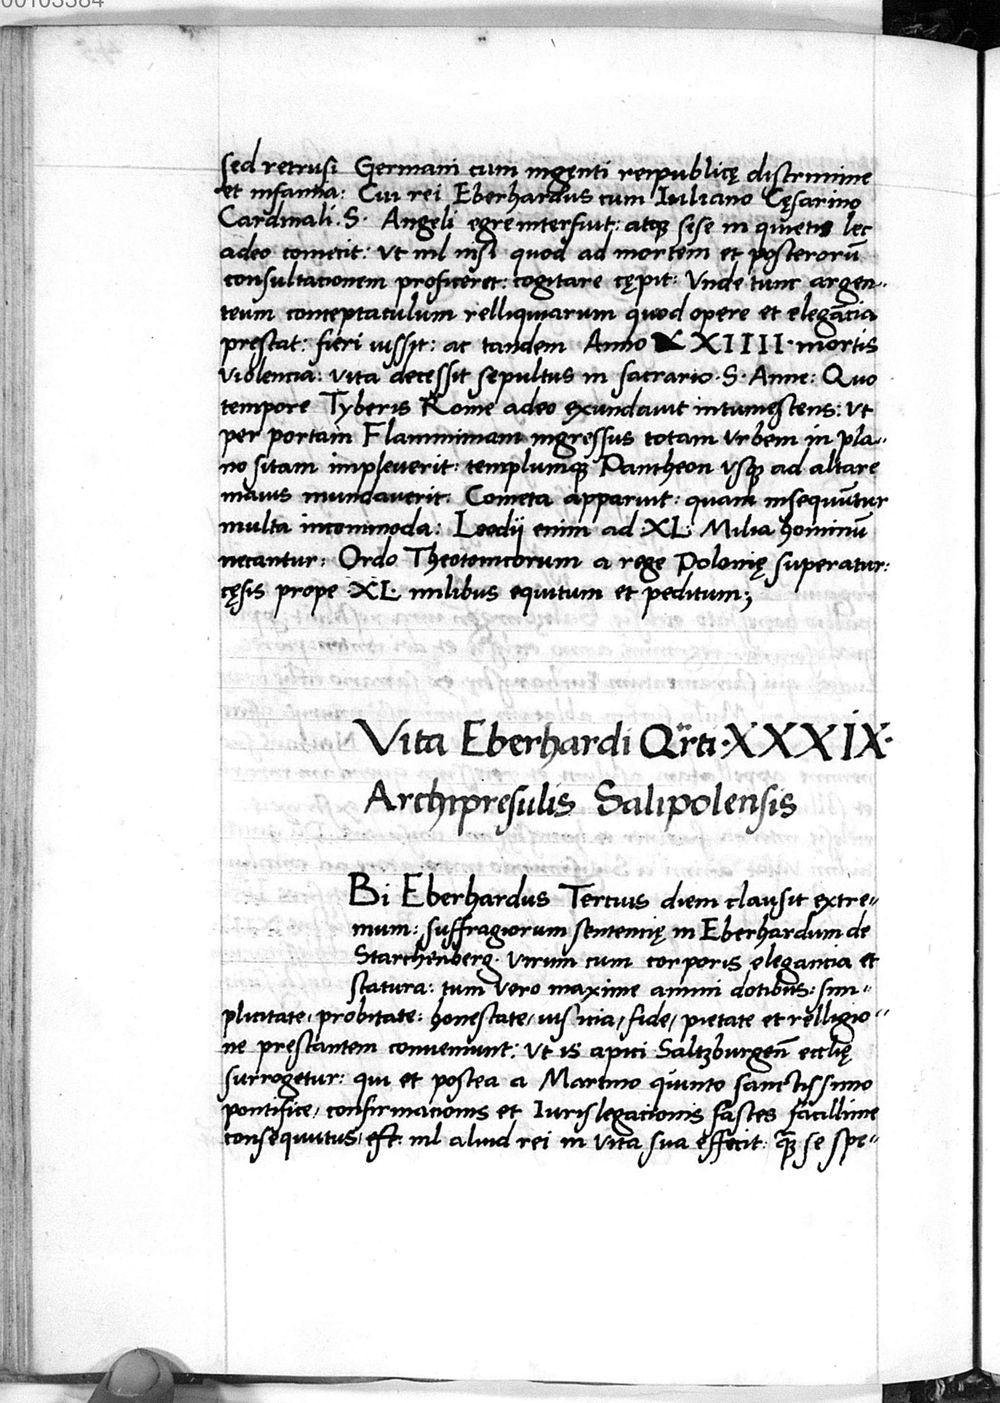 00103384
sed retrusi Germani cum ingenti reipublicę discrimine
et infamia: Cui rei Eberhardus cum Iuliano Cęsarino
Cardinali. S. Angeli egre interfuit: atqꝫ sese in quietis lec
adeo coniecit: Vt nil nisi quod ad mortem et posterorū
consultacionem proficeret: cogitare cępit: Vnde tunc argen-
teum conceptaculum relliquiarum quod opere et elegācia
prestat: fieri iussit: ac tandem Anno XXIIII. mortis
violencia: vita decessit sepultus in sacrario. S. Anne: Quo
tempore Tyberis Rome adeo exundauit intumescens: Vt
per portam Flamminiam ingressus totam Vrbem in pla-
no sitam impleuerit: templumqꝫ Pantheon vsqꝫ ad altare
maius inundauerit: Cometa apparuit: quam insequūtur
multa incommoda: Leodij enim ad XL. Milia hominū
necantur: Ordo Theotonicorum a rege Polonię superatur:
cęsis prope XL. milibus equitum et peditum;
Vita Eberhardi Qrti. XXXIX.
Archipresulis Salipolensis
Bi Eberhardus Tercius diem clausit extre-
mum: suffragiorum sentencię in Eberhardum de
Starchenberg. virum cum corporis elegancia et
statura: tum vero maxime animi dotibus: sim-
plicitate, probitate: honestate, iusticia, fide, pietate et relligio-
ne prestantem conueniunt: Vt is apici Saltzburgen̄ ecclię
surrogetur: qui et postea a Martino quinto sanctissimo
pontifice, confirmacionis et Iuris legacionis fasces facillime
consequutus, est: nil aliud rei in vita sua effecit: qꝫ se spe-